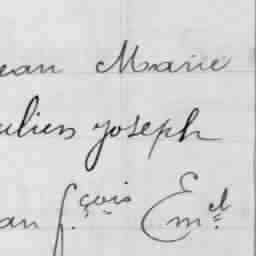 ean Marie
ulien Joseph
an f.çois Em.el